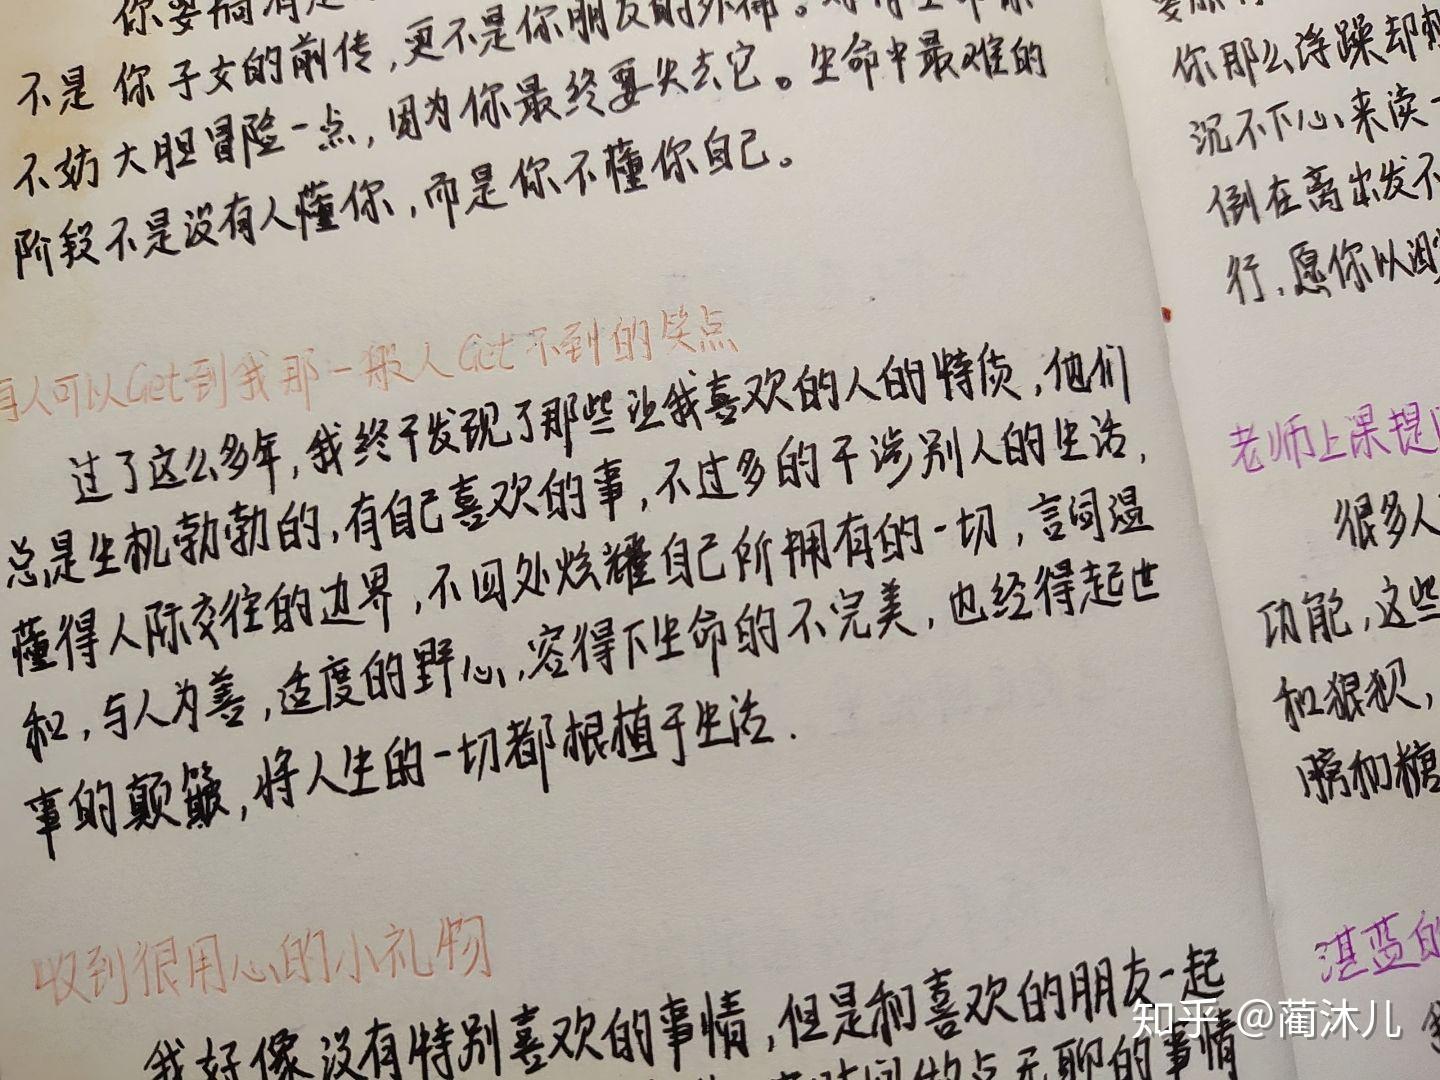 不是你子女的前传,更不是你朋友的外篇。
不妨大胆冒险一点,因为你最终要失去它。生命中最难的
阶段不是没有人懂你,而是你不懂你自己。
有人可以Get到我那一般人Get不到的笑点
过了这么多年,我终于发现了那些让我喜欢的人的特质,他们
总是生机勃勃的,有自己喜欢的事,不过多的干涉别人的生活,
懂得人际交往的边界,不四处炫耀自己所拥有的一切,言词温
和,与人为善,适度的野心,容得下生命的不完美,也经得起世
事的颠簸,将人生的一切都根植于生活.
收到很用心的小礼物
我好像没有特别喜欢的事情,但是和喜欢的朋友一起
点无聊的事情
你那么浮躁却
沉不下心来读一
倒在离出发不
行,愿你以
老师上课提
很多人
功能,这些
和狠狈,
膀和糖
湛蓝的
知乎 @蔺沐儿